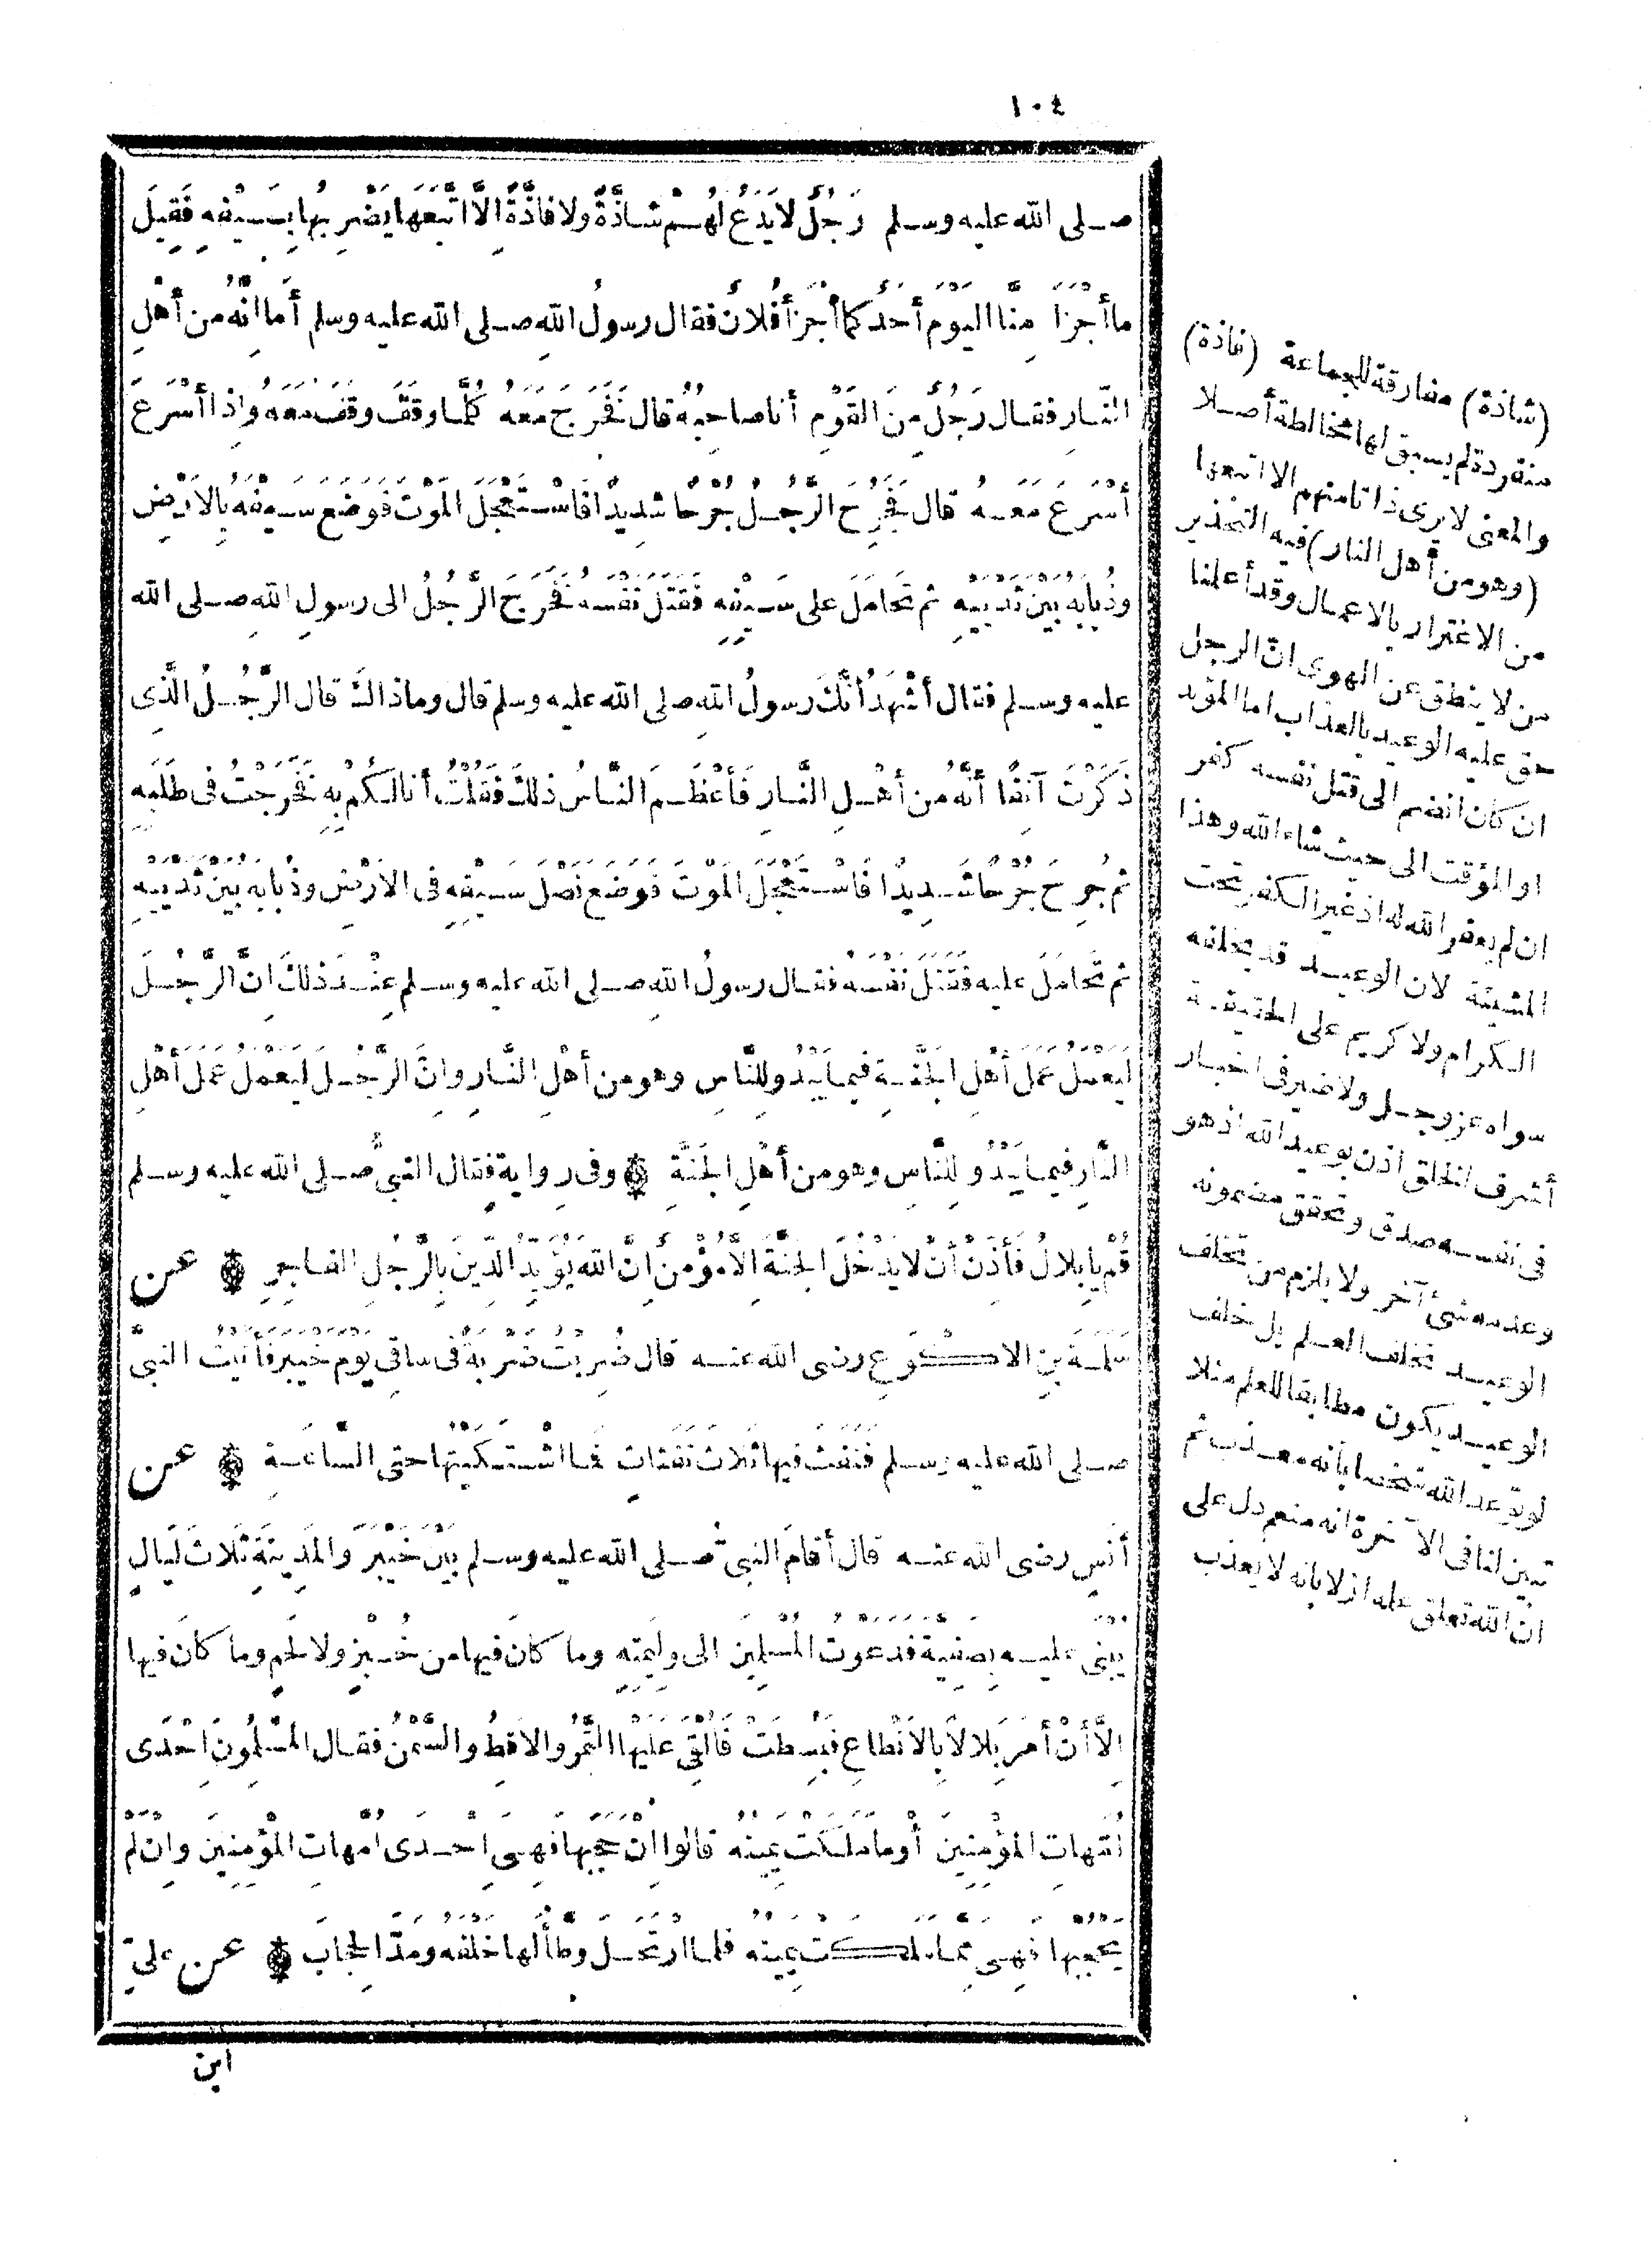 ١٠٤
صلى الله عليه وسلم رَجُلٌ لا يَدَعُ لَهُمْ شاذَّةً ولا فاذَّةً اِلاَّ اتَّبَعَها يَضْرِبُها بِسَيْفِهِ فَقِيلَ
ما أَجْزَأَ مِنَّا اليَوْمَ أَحَدٌ كما أَجْزَأَ فُلانٌ فقال رسولُ اللهِ صلى الله عليه وسلم أَما اِنَّهُ من أَهْلِ
النَّارِ فقال رَجُلٌ مِنَ القَوْمِ أنا صاحِبُهُ قال فَخَرَجَ مَعَهُ كُلَّما وقَفَ وقَفَ مَعَهُ واِذا أَسْرَعَ
أَسْرَعَ مَعَهُ قال فَجُرِحَ الرَّجُلُ جُرْحًا شدِيدًا فَاسْتَعْجَلَ المَوْتَ فَوَضَعَ سَيْفَهُ بِالاَرْضِ
وذُبابَهُ بَيْنَ ثَدْيَيْهِ ثم تَحَامَلَ على سَيْفِهِ فَقَتَلَ نَفْسَهُ فَخَرَجَ الرَّجُلُ الى رسولِ اللهِ صلى الله
عليه وسلم فقال أَشْهَدُ أَنَّكَ رسولُ اللهِ صلى الله عليه وسلم قال وما ذاكَ قال الرَّجُلُ الَّذِى
ذَكَرْتَ آنِفًا أَنَّهُ من أَهْلِ النَّارِ فَأَعْظَمَ النَّاسُ ذلكَ فَقُلْتُ أنا لَكُمْ بِهِ فَخَرَجْتُ فى طَلَبِهِ
ثم جُرِحَ جُرْحًا شَدِيدًا فَاسْتَعْجَلَ المَوْتَ فَوَضَعَ نَصْلَ سَيْفِهِ فى الاَرْضِ وذُبابَهُ بَيْنَ ثَدْيَيْهِ
ثم تَحَامَلَ عليه فَقَتَلَ نَفْسَهُ فقال رسولُ اللهِ صلى الله عليه وسلم عِنْدَ ذلكَ اِنَّ الرَّجُلَ
لَيَعْمَلُ عَمَلَ أَهْلِ الجَنَّةِ فيما يَبْدُو لِلنَّاسِ وهو من أَهْلِ النَّارِ واِنَّ الرَّجُلَ لَيَعْمَلُ عَمَلَ أَهْلِ
النَّارِ فيما يَبْدُو لِلنَّاسِ وهو من أَهْلِ الجَنَّةِ وفى رِوايةٍ فقال النبىُّ صلى الله عليه وسلم
قُمْ يا بِلالُ فَأَذِّنْ أَنْ لا يَدْخُلَ الجَنَّةَ اِلاَّ مُؤْمِنٌ اِنَّ اللهَ يُؤَيِّدُ الدِّينَ بِالرَّجُلِ الفاجِرِ عن
سَلَمَةَ بنِ الاَكْوَعِ رضى الله عنه قال ضُرِبْتُ ضَرْبَةً فى ساقِى يَوْمَ خَيْبَرَ فَأَتَيْتُ النبىَّ
صلى الله عليه وسلم فَنَفَثَ فيها ثَلاثَ نَفَثاتٍ فَما اشْتَكَيْتُها حتى السَّاعَةِ عن
أَنَسٍ رضى الله عنه قال أَقامَ النبىُّ صلى الله عليه وسلم بَيْنَ خَيْبَرَ والمَدِينَةِ ثَلاثَ لَيَالٍ
يُبْنَى عليه بِصَفِيَّةَ فَدَعَوْتُ المُسْلِمِينَ الى ولِيمَتِهِ وما كانَ فيها من خُبْزٍ ولا لَحْمٍ وما كانَ فيها
اِلاَّ أَنْ أَمَرَ بِلالاً بِالاَنْطاعِ فَبُسِطَتْ فَأَلْقَى عَلَيْها التَّمْرَ والاَقِطَ والسَّمْنَ فقال المُسْلِمُونَ اِحْدَى
أُمَّهاتِ المُؤْمِنِينَ أَوْ ما مَلَكَتْ يَمِينُهُ قالُوا اِنْ حَجَبَها فَهِىَ اِحْدَى أُمَّهاتِ المُؤْمِنِينَ واِنْ لَمْ
يَحْجُبْها فَهِىَ مِمَّا مَلَكَتْ يَمِينُهُ فلما ارْتَحَلَ وطَّأَ لها خَلْفَهُ ومَدَّ الحِجابَ عن علىِّ
ابن
(شاذة) مفارقة للجماعة (فاذة)
منفردة لم يسبق لها مخالطة أصلا
والمعنى لا يرى ذاتا منهم الا اتبعها
(وهو من أهل النار) فيه التحذير
من الاغترار بالاعمال وقد أعلنا
من لا ينطق عن الهوى انّ الرجل
حق عليه الوعيد بالعذاب اما المؤبد
ان كان انضم الى قتل نفسه كفر
او المؤقت الى حيث شاء الله وهذا
ان لم يغفر الله له اذ غير الكفر تحت
المشيئة لان الوعيد قد يخلفه
الكرام ولا كريم على الحقيقة
سواه عز وجل ولا ضير فى اخبار
أشرف الخلق اذن بوعيد الله اذ هو
فى نفسه صدق وتحقق مضمونه
وعدمه شئ آخر ولا يلزم من تخلف
الوعيد تخلف العلم بل خلف
الوعيد يكون مطابقا للعلم مثلا
لو توعد الله شخصا بأنه معذب ثم
تبين لنا فى الآخرة انه منعم دل على
انّ الله تعلق علمه ازلا بانه لا يعذب